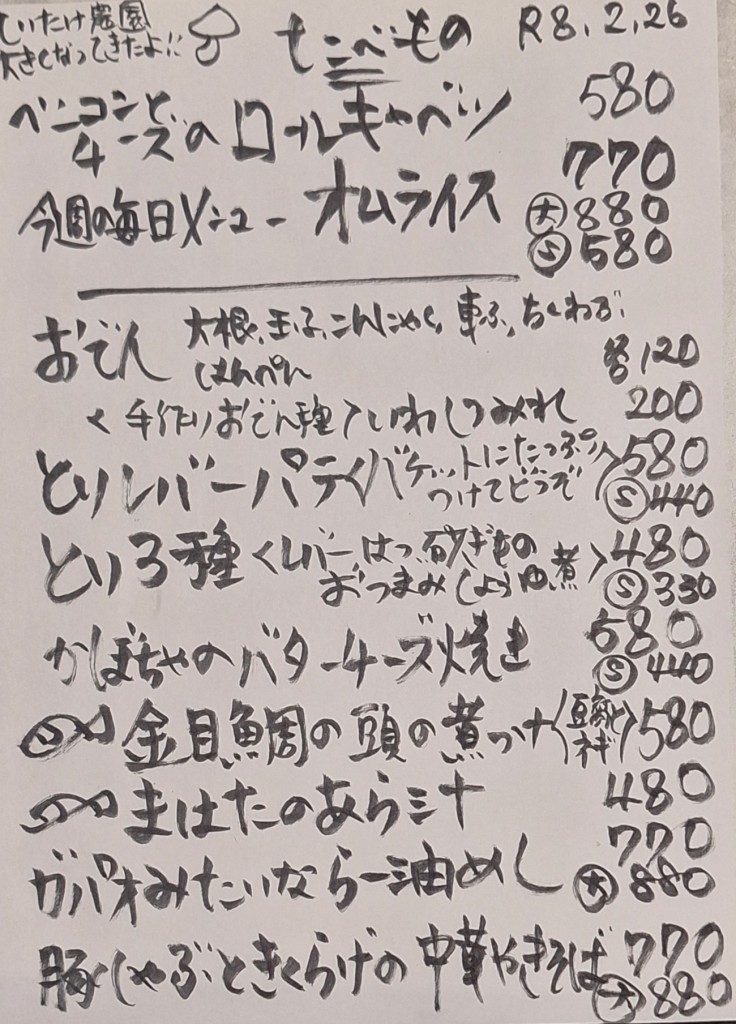 しいたけ農園
大きくなってきたよ!!
たべもの R8.2.26
ベーコンとチーズのロールキャベツ 580
今週の毎日メニュー オムライス 770
大 880
S 580
おでん 大根、玉子、こんにゃく、車ふ、ちくわぶ、
はんぺん 各120
<手作りおでん種>いわしつみれ 200
とりレバーパテ<バゲットにたっぷり
つけてどうぞ> 580
S 440
とり3種<レバーはつ砂ぎもの
おつまみしょうゆ煮> 480
S 330
かぼちゃのバターチーズ焼き 580
S 440
金目鯛の頭の煮つけ(豆腐と
ネギ) 580
まはたのあら汁 480
ガパオみたいならー油めし 770
大 880
豚しゃぶときくらげの中華やきそば 770
大 880